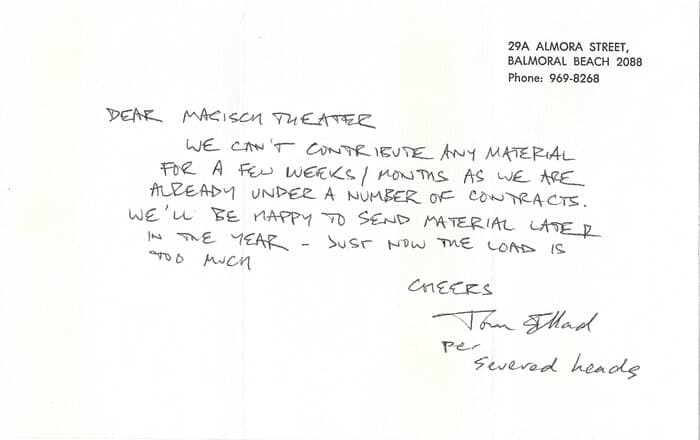 29A ALMORA STREET,
BALMORAL BEACH 2088
Phone: 969-8268
DEAR MAGISCH THEATER
WE CAN'T CONTRIBUTE ANY MATERIAL
FOR A FEW WEEKS/MONTHS AS WE ARE
ALREADY UNDER A NUMBER OF CONTRACTS.
WE'LL BE HAPPY TO SEND MATERIAL LATER
IN THE YEAR – JUST NOW THE LOAD IS
TOO MUCH
CHEERS
Tom Ellard
per
Severed heads